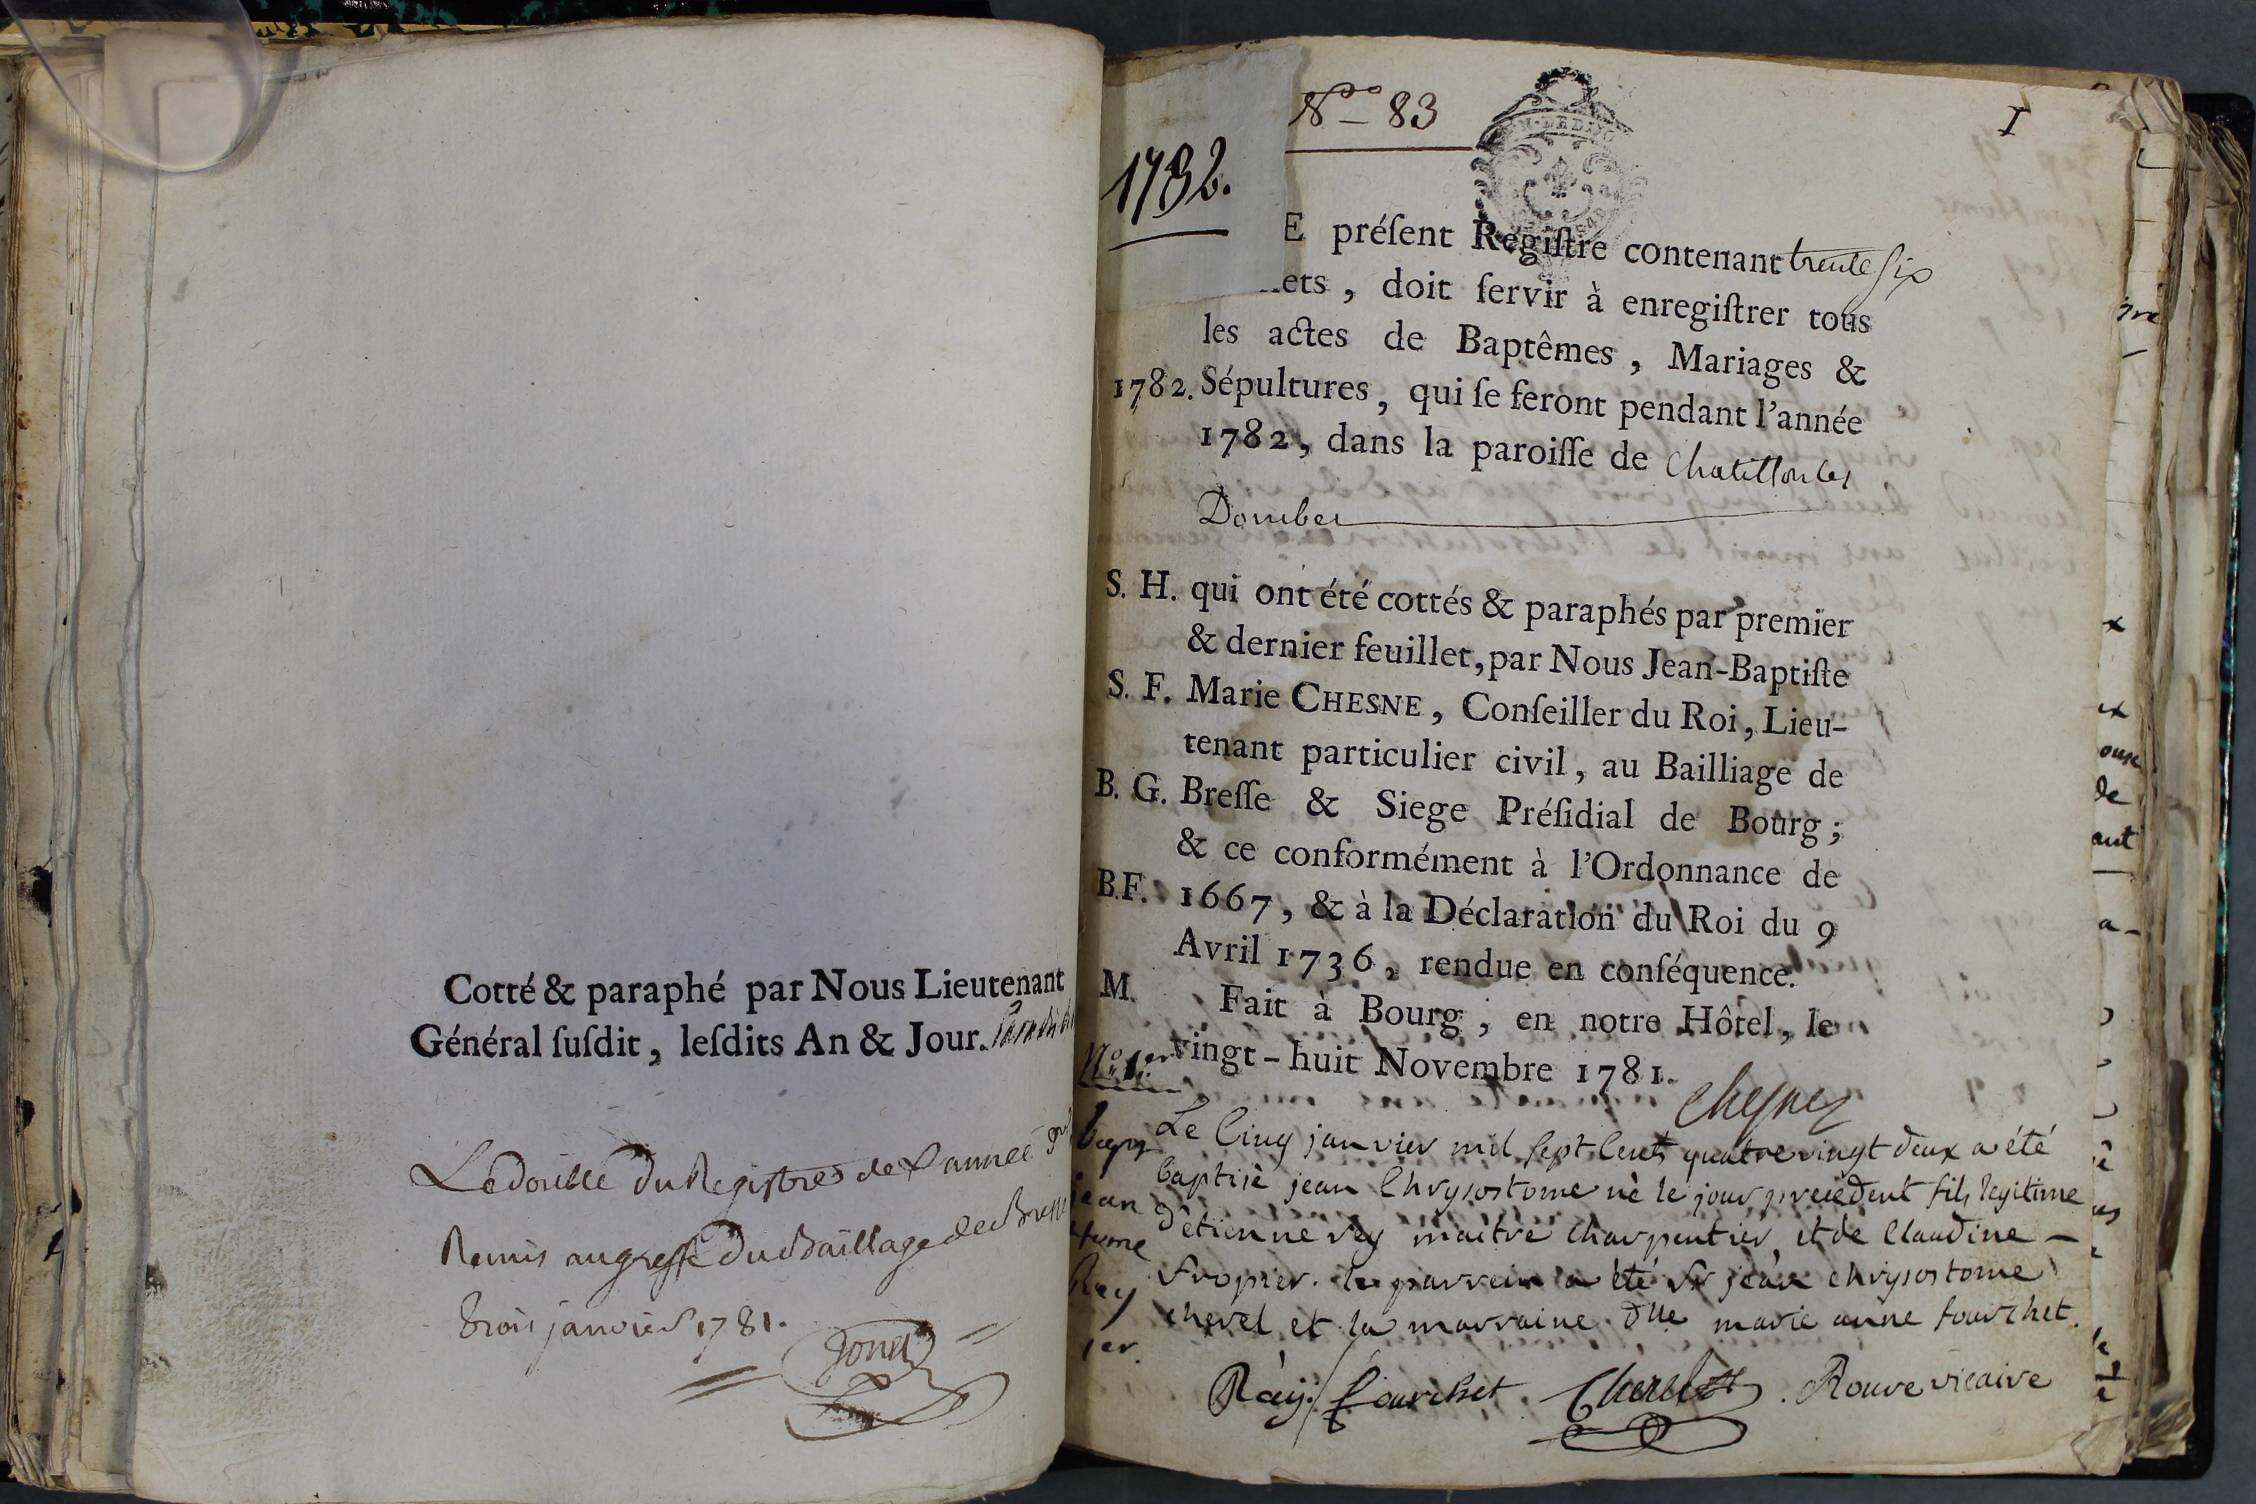 Cotté & paraphé par Nous Lieutenant
Général ſuſdit, leſdits An & Jour.
Le double du Registres de l'année
Remis au greffe du Baillage de Bresse
trois janvier 1781.
1782.
No 83
I
E préſent Regiſtre contenant trente six
ets, doit ſervir à enregiſtrer tous
les actes de Baptêmes, Mariages &
1782. Sépultures, qui ſe feront pendant l'année
1782, dans la paroiſſe de Chatillon les
Dombes
S. H. qui ont été cottés & paraphés par premier
& dernier feuillet, par Nous Jean-Baptiſte
S. F. Marie CHESNE, Conſeiller du Roi, Lieu-
tenant particulier civil, au Bailliage de
B. G. Breſſe & Siege Préſidial de Bourg;
& ce conformément à l'Ordonnance de
B.F. 1667, & à la Déclaration du Roi du 9
Avril 1736, rendue en conſéquence.
M. Fait à Bourg, en notre Hôtel, le
vingt-huit Novembre 1781.
No. 1er
Le Cinq janvier mil sept Cent quatre vingt deux a été
bap
baptisé jean Chrysostome né le jour precedent fils legitime
jean
d'etienne rey maitre charpentier, et de Claudine
tome
fropier. le parrein a été Sr jean chrysostome
Rey
chevel et la marraine Dlle marie anne fourchet.
1er.
Rey fourchet . Rouve vicaire